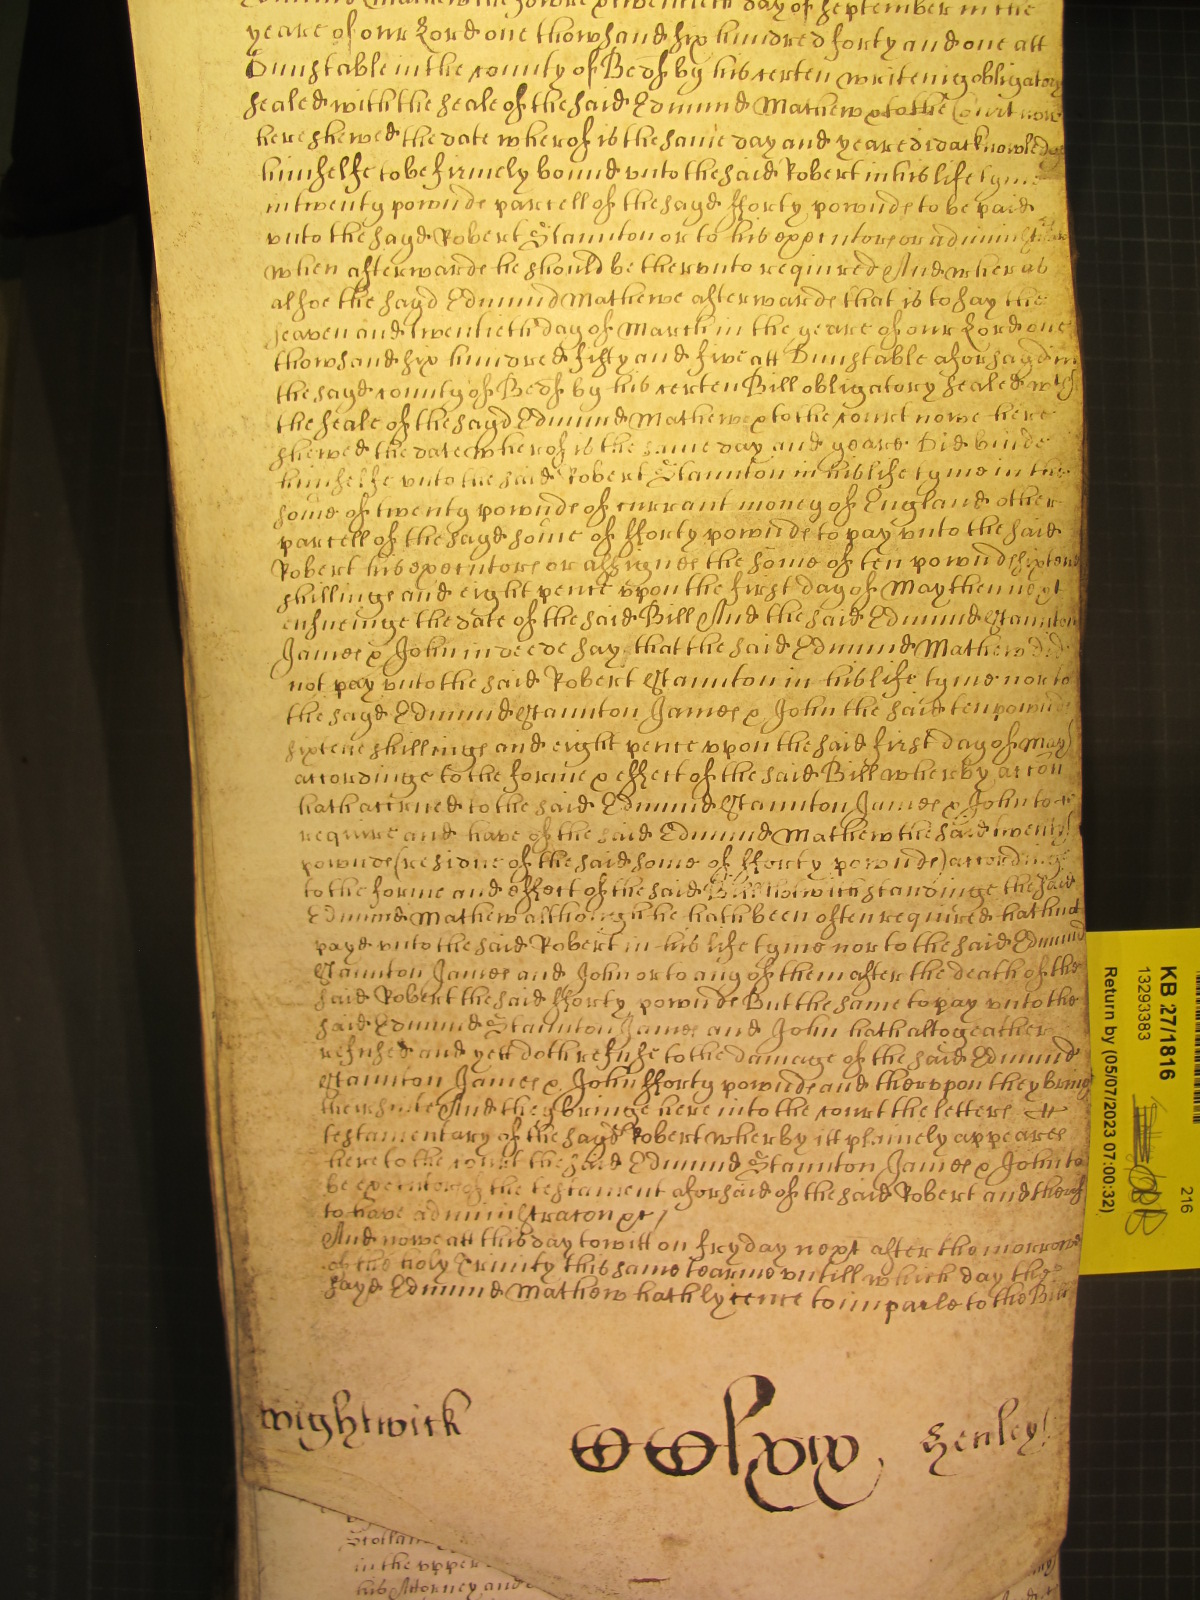 Edmund Mathew the sowre & twentieth day of September in the
yeare of our Lord one thowsand six hundred forty and one att
Dunstable in the county of Bedf by his certen writeinge obligatory
sealed with the seale of the said Edmund Mathew & to the Court now
here shewed the date wherof is the same day and yeare did acknowledge
himselfe to be firmely bound unto the said Robert in his life tyme
in twenty pownds parcell of the sayd fforty pownds to be paid
unto the sayd Robert Staunton or to his executors or administrators
when afterwards he should be therunto required And wheras
alsoe the sayd Edmund Mathewe afterwards that is to say the
seaven and twentieth day of March in the yeare of our Lord one
thowsand six hundred fifty and five att Dunstable aforsayd in
the sayd county of Bedf by his certen Bill obligatory sealed with
the seale of the sayd Edmund Mathewe & to the court nowe here
shewed the date wherof is the same day and yeare Did binde
himselfe unto the said Robert Staunton in his life tyme in the
some of twenty pownds of currant money of England other
parcell of the sayd some of fforty pownds to pay unto the said
Robert his executors or assignes the some of ten pownds sixtene
shillings and eight pence upon the first day of May then next
ensueinge the date of the said Bill And the said Edmund Staunton
James & John in deede say that the said Edmund Mathew did
not pay unto the said Robert Staunton in his life tyme nor to
the sayd Edmund Staunton James & John the said ten pownds
sixtene shillings and eight pence upon the said first day of May
accordinge to the forme & effect of the said Bill wherby accon
hath accrued to the said Edmund Staunton James & John to
require and have of the said Edmund Mathew the said twenty
pownds (residue of the said some of fforty pownds) accordinge
to the forme and effect of the said Bill notwithstandinge the said
Edmund Mathew although he hath been often required hath not
payd unto the said Robert in his life tyme nor to the said Edmund
Staunton James and John or to any of them after the death of the
said Robert the said fforty pownds But the same to pay unto the
said Edmund Staunton James and John hath altogeather
refused and yett doth refuse to the damage of the said Edmund
Staunton James & John fforty pownds and therupon they bring
their suite And they bringe here into the court the letters
testamentary of the sayd Robert wherby itt plainely appeares
here to the court the said Edmund Staunton James & John to
be executors of the testament aforsaid of the said Robert and therof
to have administracon &c /
And nowe att this day to witt on fryday next after the morrowe
of the holy Trinity this same tearme untill which day the
sayd Edmund Mathew hath lycence to imparle to the Bill
Wightwick
Henley
Scotland
in the upper
his Attorney and
KB 27/1816
13293383
Return by (05/07/2023 07:00:32)
216